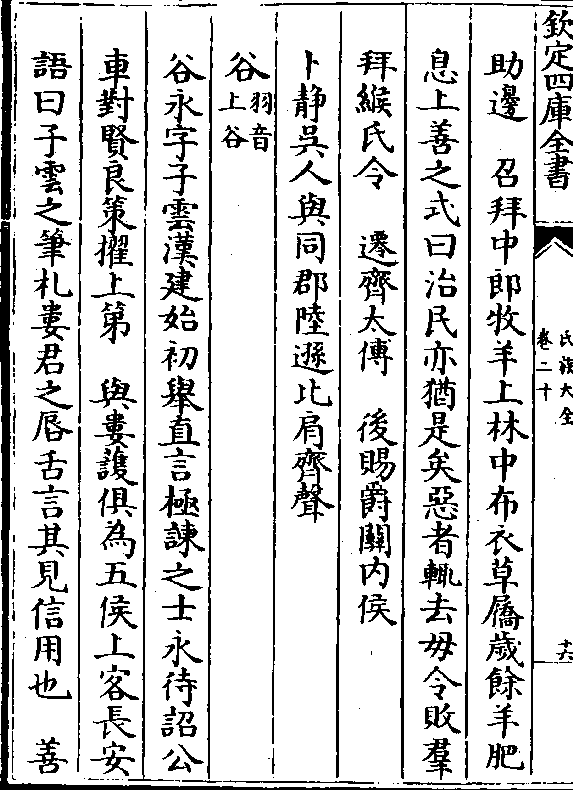 欽定四庫全書
氏族大全
卷二十
十六
助邊　召拜中郎牧羊上林中布衣草屩歲餘羊肥
息上善之式曰治民亦猶是矣惡者輒去毋令敗羣
拜緱氏令　遷齊太傅　後賜爵關内侯
卜静吳人與同郡陸遜比肩齊聲
谷羽音上谷
谷永字子雲漢建始初舉直言極諫之士永待詔公
車對賢良策擢上第　與婁護俱為五侯上客長安
語曰子雲之筆札婁君之唇舌言其見信用也　善